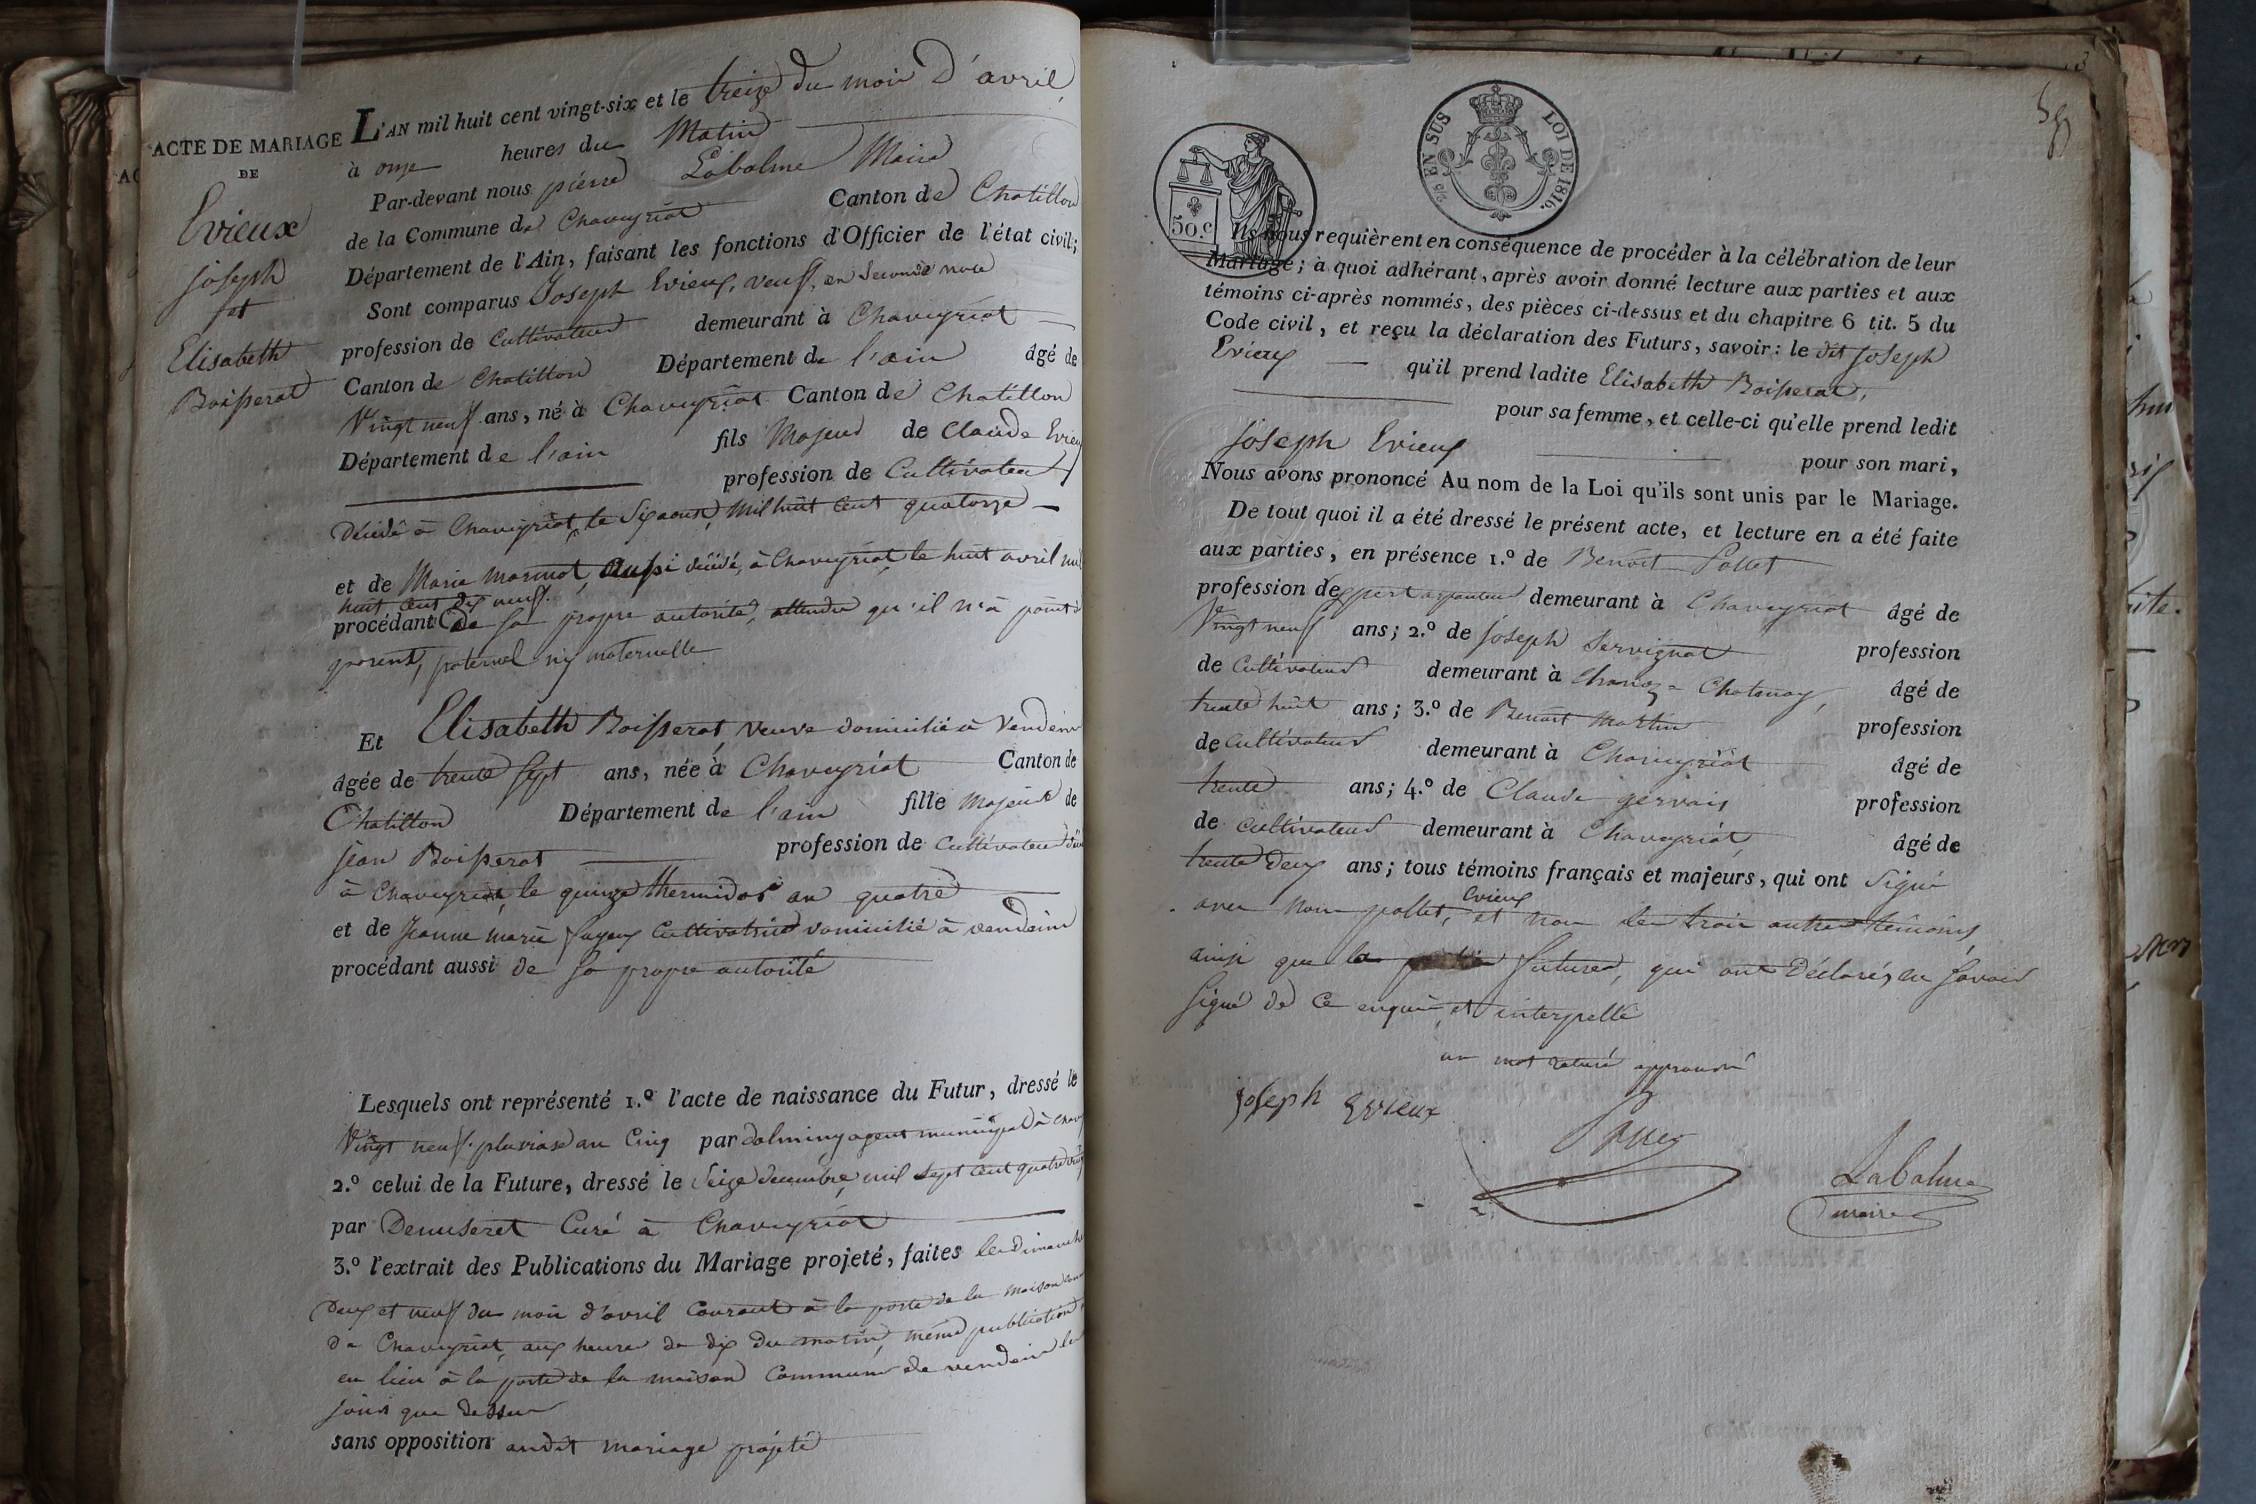 L'AN mil huit cent vingt-six et le treize du mois D'avril
ACTE DE MARIAGE
DE
Evieux
joseph
et
Elisabeth
Boisserat
à onze heures du Matin
Par-devant nous pierre Labalme Maire
de la Commune de Chaveyriat Canton de Chatillon
Département de l'Ain, faisant les fonctions d'Officier de l'état civil;
Sont comparus Joseph Evieux, veuf, en Seconde noce
profession de Cultivateur demeurant à Chaveyriat
Canton de Chatillon Département de l'ain âgé de
Vingt neuf ans, né à Chaveyriat Canton de Chatillon
Département de l'ain fils Majeur de Claude Evieux
profession de Cultivateur
décédé à Chaveyriat, le Six aoust, Mil huit Cent quatorze
et de Marie Marmot, Aussi décédé, à Chaveyriat, le huit avril mil
huit cent dix neuf.
procédant de Sa propre autorité, attendu qu'il n'à point de
parent, paternel ny maternelle
Et Elisabeth Boisserat, veuve domicilié à Vendeins
âgée de trente Sept ans, née à Chaveyriat Canton de
Chatillon Département de l'ain fille Majeure de
Jean Boisserat profession de Cultivateur
à Chaveyriat, le quinze thermidor an quatre
et de Jeanne marie Cultivatrice domicilié à vendeins
procédant aussi de Sa propre autorité
Lesquels ont représenté 1.º l'acte de naissance du Futur, dressé le
Vingt neuf pluviose an Cinq par agent municipal à
2.º celui de la Future, dressé le Seize decembre, mil Sept Cent quatre
par Demiseret Curé à Chaveyriat
3.º l'extrait des Publications du Mariage projeté, faites les dimanche
Deux et neuf du mois d'avril Courant à la porte de la maison
de Chaveyriat, aux heures de dix du matin, même publication,
eu lieu à la porte de la maison Commune de vendeins les
jours que dessus
sans opposition audit mariage projeté
50.c
EN SUS LOI DE 1816.
Ils nous requièrent en conséquence de procéder à la célébration de leur
Mariage; à quoi adhérant, après avoir donné lecture aux parties et aux
témoins ci-après nommés, des pièces ci-dessus et du chapitre 6 tit. 5 du
Code civil, et reçu la déclaration des Futurs, savoir: le dit joseph
Evieux qu'il prend ladite Elisabeth Boisserat,
pour sa femme, et celle-ci qu'elle prend ledit
joseph Evieux pour son mari,
Nous avons prononcé Au nom de la Loi qu'ils sont unis par le Mariage.
De tout quoi il a été dressé le présent acte, et lecture en a été faite
aux parties, en présence 1.º de Benoit Pollet
profession de expert arpenteur demeurant à Chaveyriat âgé de
Vingt neuf ans; 2.º de joseph Servignat profession
de Cultivateur demeurant à Chanoz-Chatenay, âgé de
trente huit ans; 3.º de Benoit Martin profession
de Cultivateur demeurant à Chaveyriat âgé de
trente ans; 4.º de Claude gervais profession
de Cultivateur demeurant à Chaveyriat, âgé de
trente deux ans; tous témoins français et majeurs, qui ont Signé
avec nous pollet, Evieux et non les trois autres témoins,
ainsi que la future, qui ont Déclarés, ne Savoir
Signé de Ce enquis et interpellé
un mot raturé approuvé
joseph Evieux
Labalme
maire